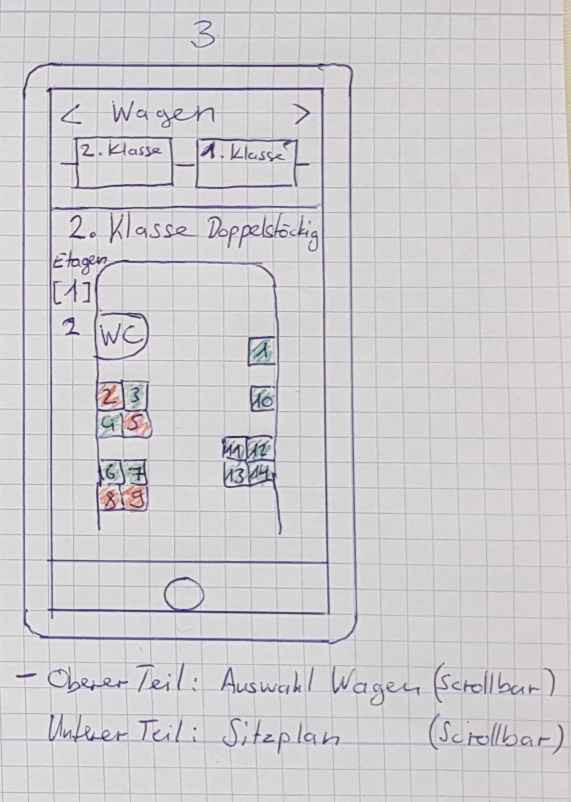 3
< Wagen >
2. Klasse 1. Klasse
2. Klasse Doppelstöckig
Etagen
[1]
2 WC
1
2 3 10
4 5
11 12
6 7 13 14
8 9
- Oberer Teil: Auswahl Wagen (Scrollbar)
Unterer Teil: Sitzplan (Scrollbar)